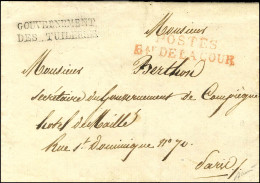 Monsieur
GOUVERNEMENT
DES TUILERIES
POSTES
Bau DE LA COUR
Monsieur Berthon
secretaire du Gouvernement de Compiègne
hotel de Maillé
Rue St Dominique No 70.
Paris